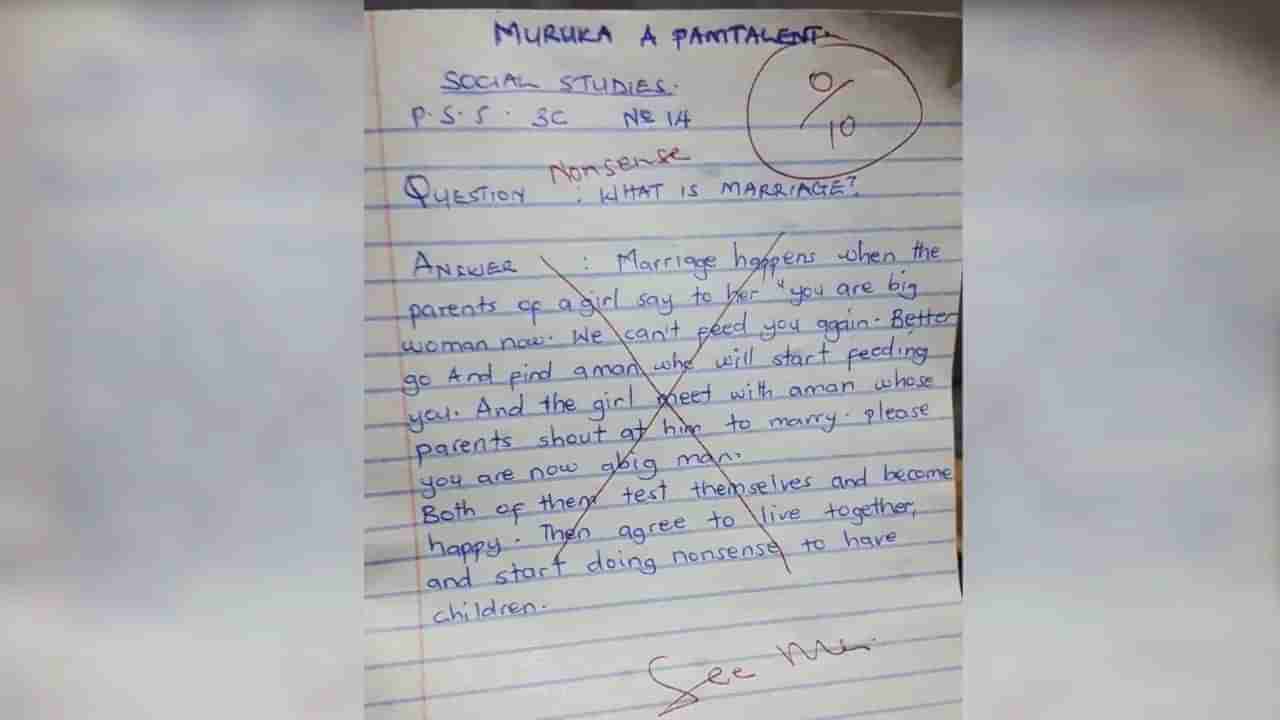 MURUKA A PAMTALENT.
SOCIAL STUDIES.
P.S.S. 3C № 14
0/10
Nonsense
QUESTION : WHAT IS MARRIAGE?
ANSWER : Marriage happens when the
parents of a girl say to her "you are big
woman now. We can't feed you again. Better
go And find a man who will start feeding
you. And the girl meet with a man whose
parents shout at him to marry. please
you are now a big man.
Both of them test themselves and become
happy. Then agree to live together,
and start doing nonsense to have
children.
See Me